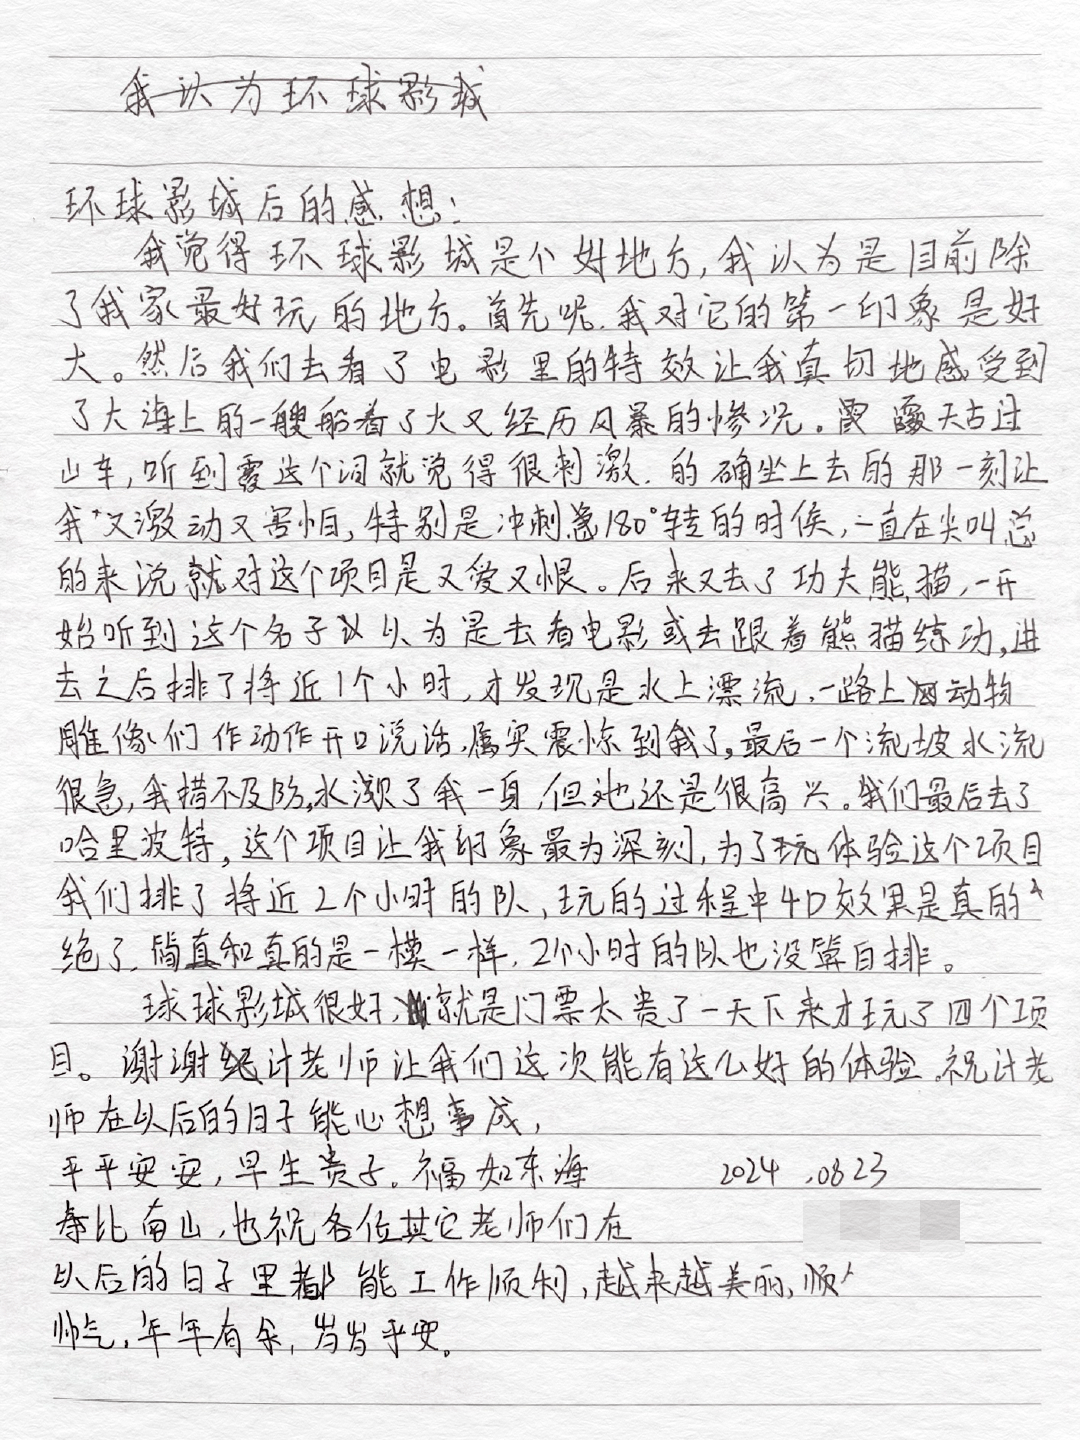 我认为环球影城
环球影城后的感想：
我觉得环球影城是个好地方，我认为是目前除
了我家最好玩的地方。首先呢，我对它的第一印象是好
大。然后我们去看了电影里的特效让我真切地感受到
了大海上的一艘船着了火又经历风暴的惨况。霸天古过
山车，听到霸这个词就觉得很刺激，的确坐上去的那一刻让
我又激动又害怕，特别是冲刺急180°转的时候，一直在尖叫总
的来说就对这个项目是又爱又恨。后来又去了功夫熊猫，一开
始听到这个名子以为是去看电影或去跟着熊猫练功，进
去之后排了将近1个小时，才发现是水上漂流，一路上动物
雕像们作动作开口说话，属实震惊到我了。最后一个流坡水流
很急，我措不及防，水溅了我一身，但也还是很高兴。我们最后去了
哈里波特，这个项目让我印象最为深刻，为了体验这个项目
我们排了将近2个小时的队，玩的过程中4D效果是真的
绝了，简直和真的是一模一样，2个小时的队也没算白排。
球球影城很好，就是门票太贵了一天下来才玩了四个项
目。谢谢计老师让我们这次能有这么好的体验。祝计老
师在以后的日子能心想事成，
平平安安，早生贵子。福如东海 2024.08 23
寿比南山，也祝各位其它老师们在
以后的日子里都能工作顺利，越来越美丽，
帅气，年年有余，岁岁平安。